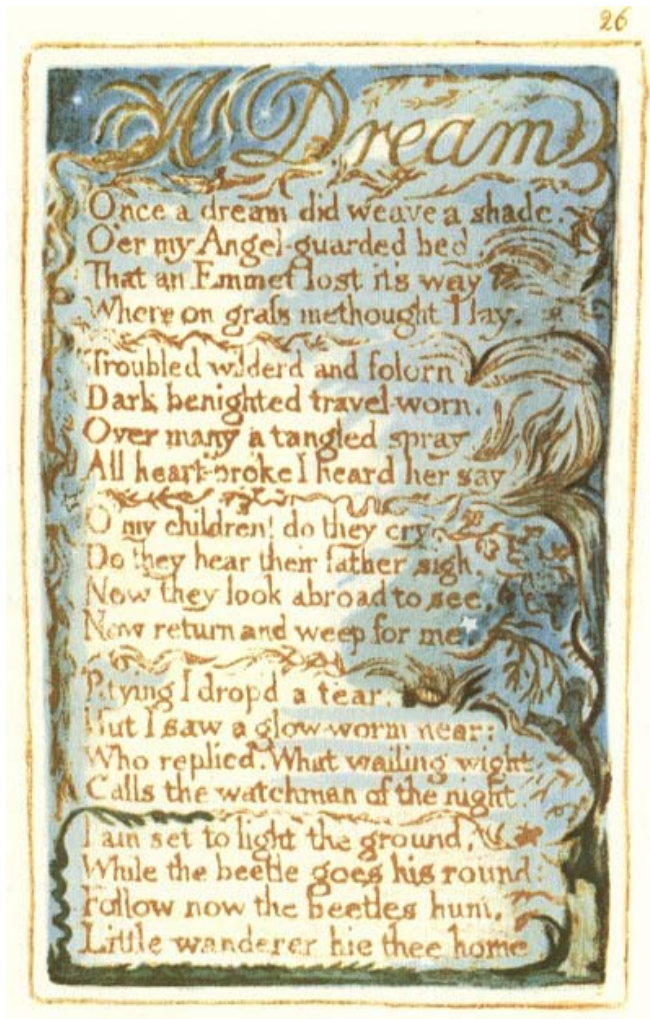 26
A Dream
Once a dream did weave a shade,
O'er my Angel-guarded bed,
That an Emmet lost it's way
Where on grafs methought I lay.
Troubled wilderd and folorn
Dark benighted travel-worn,
Over many a tangled spray
All heart-broke I heard her say
O my children! do they cry
Do they hear their father sigh,
Now they look abroad to see,
Now return and weep for me.
Pitying I dropd a tear:
But I saw a glow-worm near:
Who replied. What wailing wight
Calls the watchman of the night
I am set to light the ground,
While the beetle goes his round:
Follow now the beetles hum,
Little wanderer hie thee home